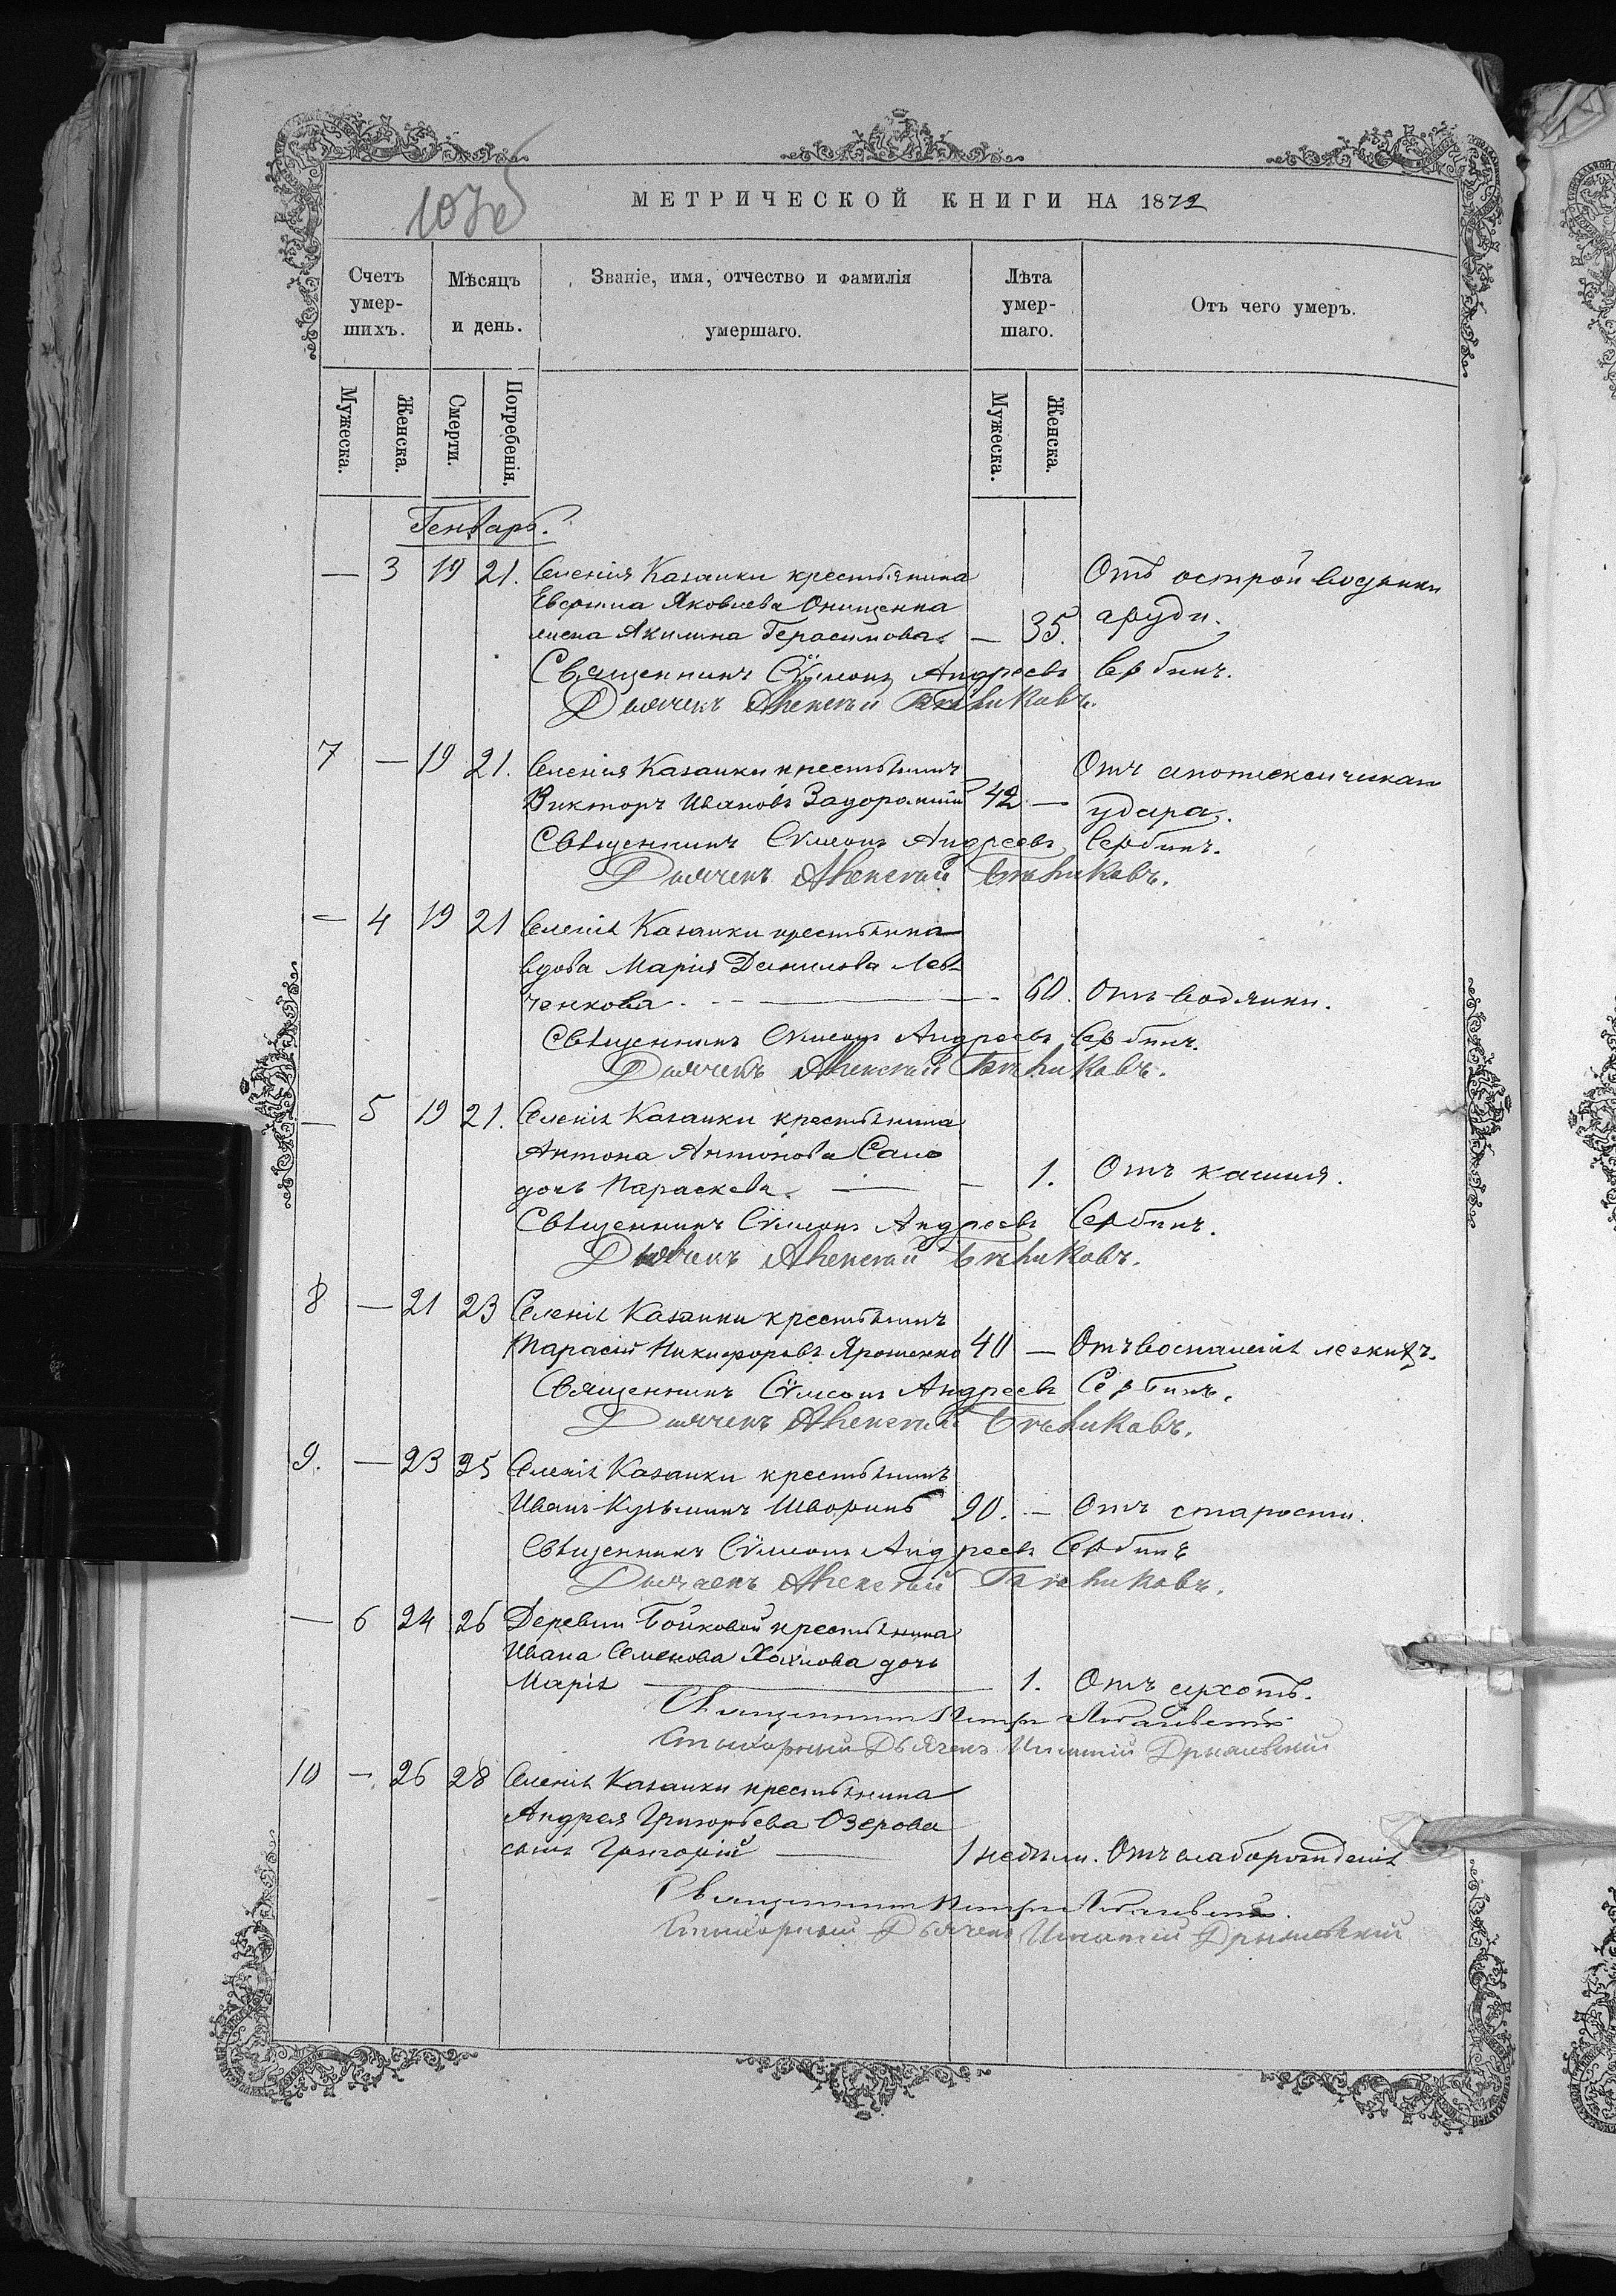 МЕТРИЧЕСКОЙ КНИГИ НА 1872
Счетъ умер-шихъ.
Мѣсяцъ и день.
Званіе, имя, отчество и фамилія умершаго.
Лѣта умер-шаго.
Отъ чего умеръ.
Мужеска. Женска. Смерти. Погребенія. Мужеска. Женска.
Генварь.
— 3 19 21. Селенія Казанки крестьянина Отъ острой водянки
Яковлева Онищенка груди.
жена Акилина Герасимова — 35.
Священникъ Сѵмеонъ Андреевъ Сербинъ.
Дьячекъ Алексѣй
7 — 19 21. Селенія Казанки крестьянинъ Отъ апоплексическаго
Викторъ Ивановъ Задорожній 42 — удара.
Священникъ Сѵмеонъ Андреевъ Сербинъ.
Дьячекъ Алексѣй
— 4 19 21 Селенія Казанки крестьянина
вдова Марія Данилова Лев-
ченкова. — 60. Отъ водянки.
Священникъ Сѵмеонъ Андреевъ Сербинъ.
Дьячекъ Алексѣй
— 5 19 21. Селенія Казанки крестьянина
Антона Антонова Сало
дочь Параскева. — — 1. Отъ кашля.
Священникъ Сѵмеонъ Андреевъ Сербинъ.
Дьячекъ Алексѣй
8 — 21 23 Селенія Казанки крестьянинъ
Тарасій Никифоровъ Ярошенко 40 — Отъ воспаленія легкихъ.
Священникъ Сѵмеонъ Андреевъ Сербинъ.
Дьячекъ Алексѣй
9. — 23 25 Селенія Казанки крестьянинъ
Иванъ Кузьминъ 90. — Отъ старости.
Священникъ Сѵмеонъ Андреевъ Сербинъ
Дьячекъ Алексѣй
— 6 24 26 Деревни Бойковой крестьянина
Ивана Семенова Хохлова дочь
Марія — 1. Отъ сухотъ.
Священникъ Петръ
Стихарный Дьячекъ Игнатій
10 — 26 28 Селенія Казанки крестьянина
Андрея Григорьева Озерова
сынъ Григорій — 1 недѣли. Отъ слаборожденія
Священникъ Петръ
Стихарный Дьячекъ Игнатій